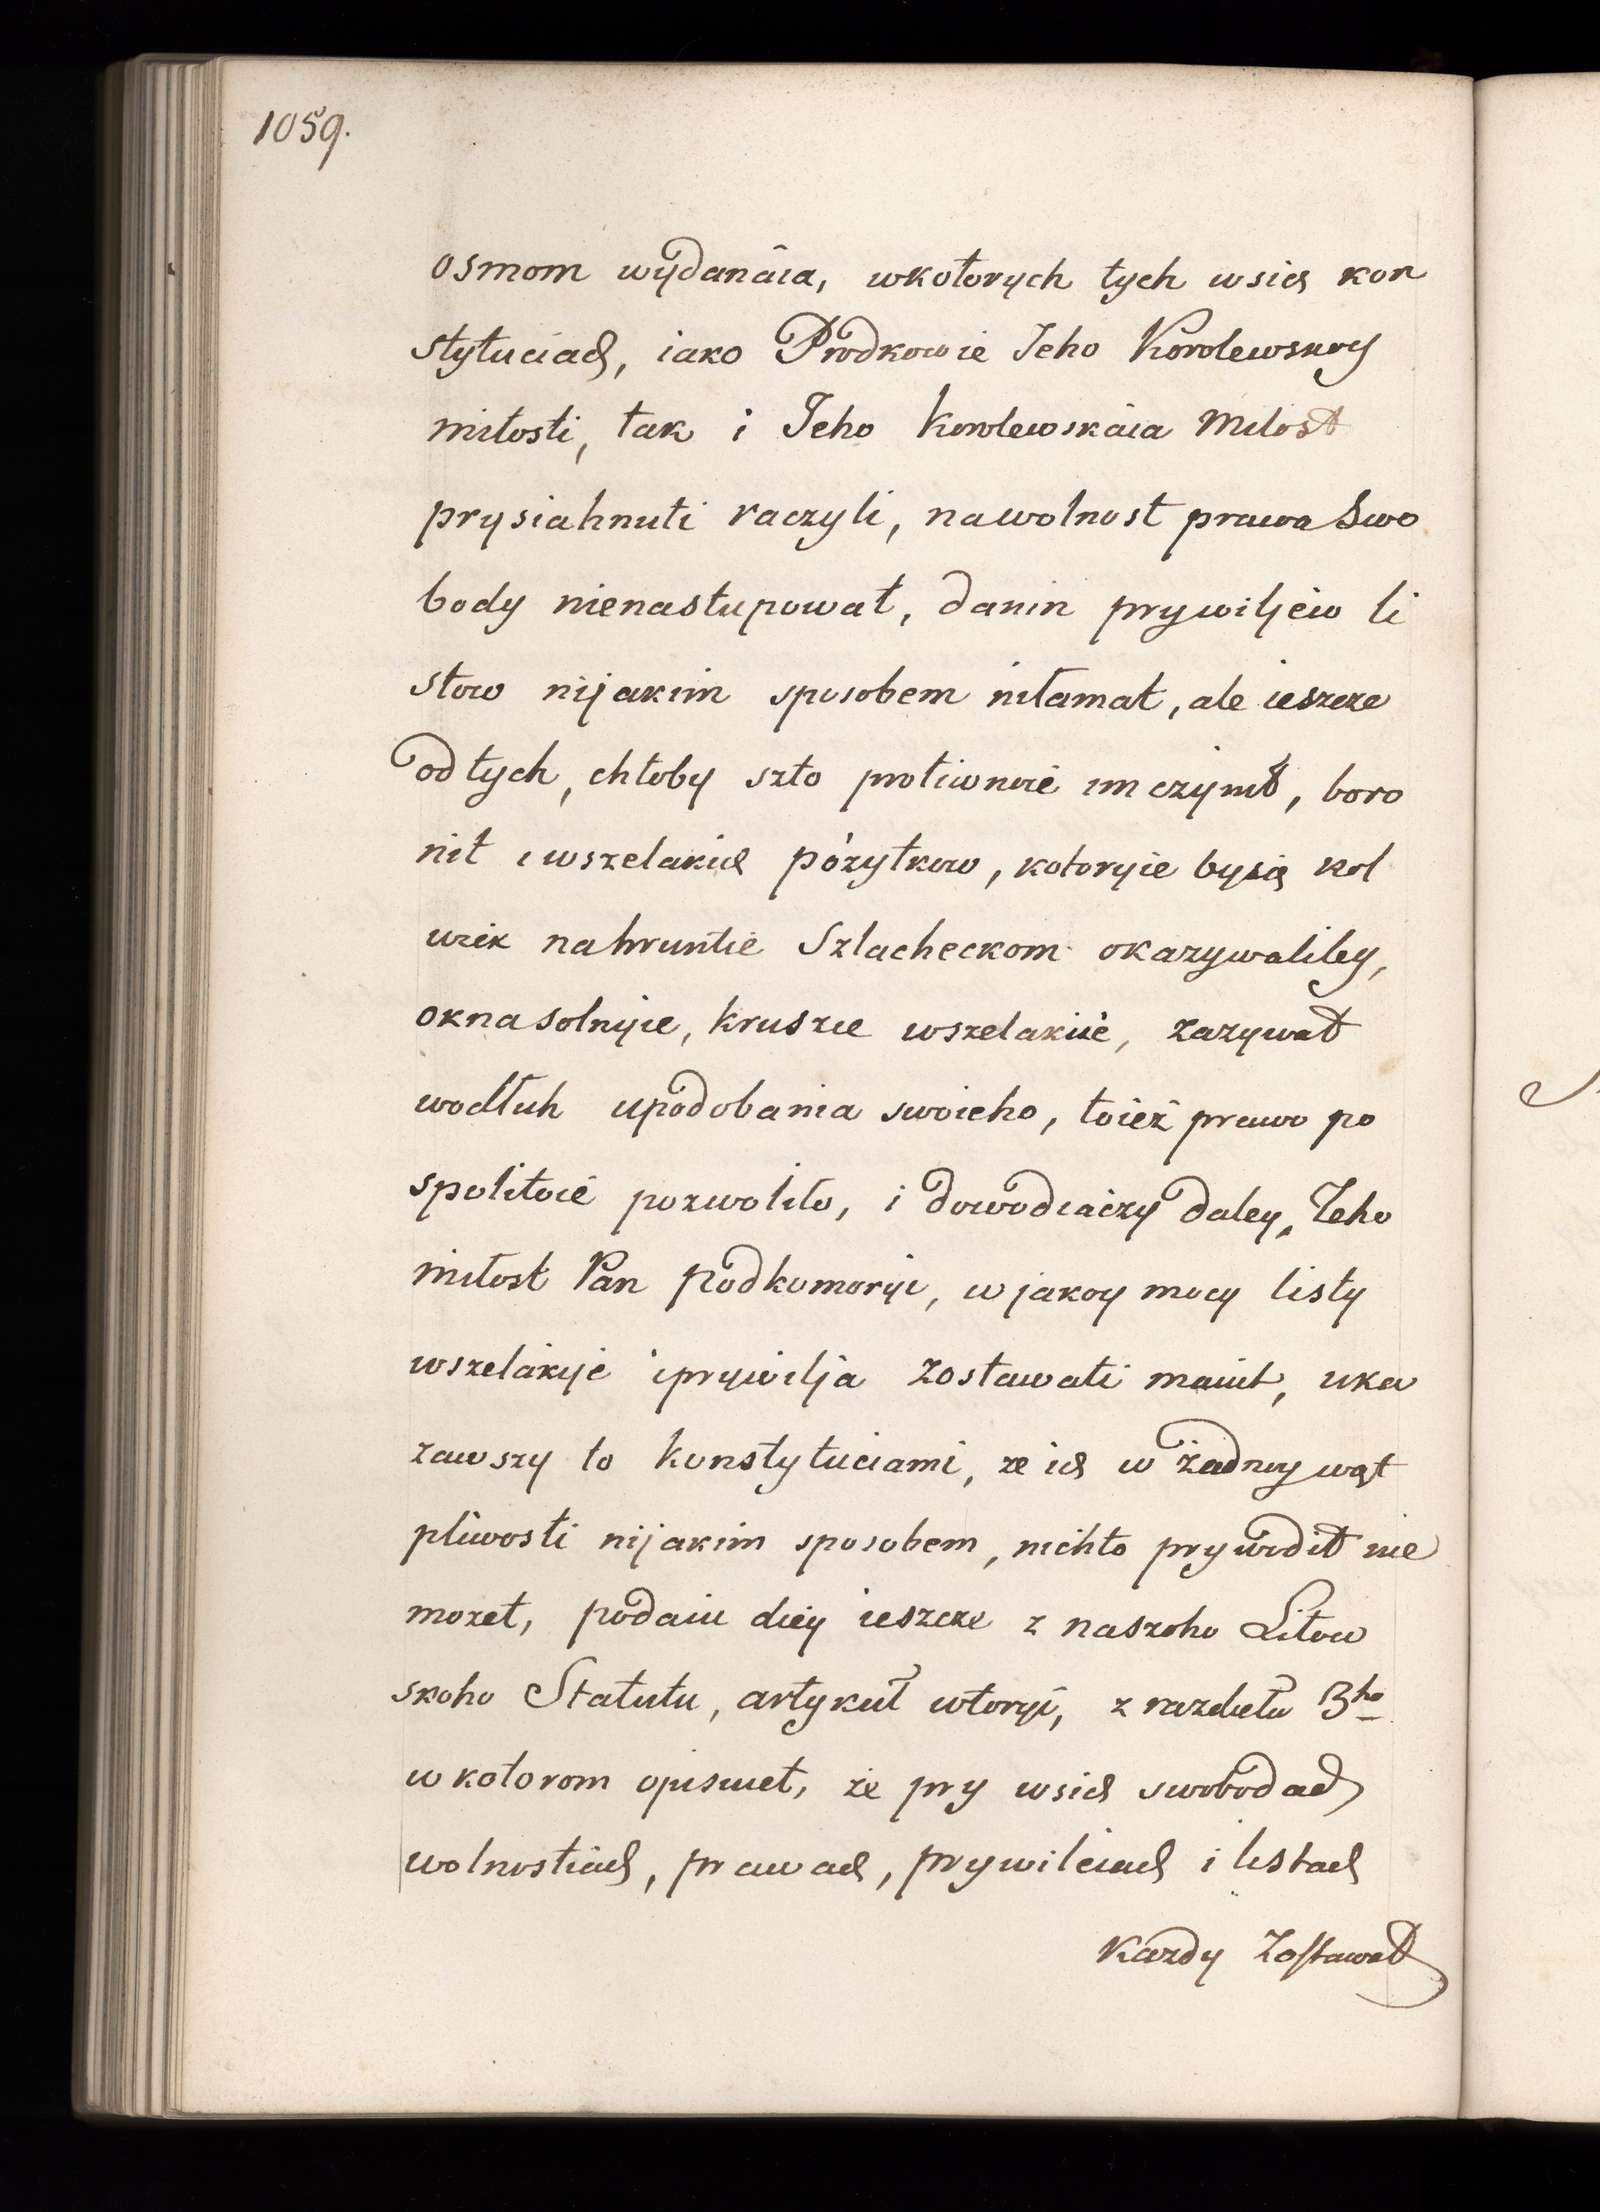 1059.
osmom wydanaia, wkotorych tych wsich kon
stytuciach, iako Prodkowie Jeho Korolewskoy
miłosti, tak i Jeho Korolewskaia Miłost
prysiahnuti raczyli, nawolnost prawa Swo
body nienastupowat, danin prywiljew li
stow nijakim sposobem niłamat, ale ieszcze
od tych, chtoby szto protiwnoie im czynit, boro
nit i wszelakich pożytkow, kotoryie bysię kol
wiek nahruntie Szlacheckom okazywaliby,
okna solnyie, kruszce wszelakiie, zazywat
wodłuh upodobania swoieho, toież prawo po
spolitoie pozwoliło, i dowodiaczy daley, Jeho
miłost Pan Podkomoryi, w jakoy mocy listy
wszelakije i prywilja zostawati maiut, uka
zawszy to konstytuciami, ze ich w żadnoy wąt
pliwosti nijakim sposobem, nichto prywodit nie
mozet, podaiu diey ieszcze z naszoho Litow
skoho Statutu, artykuł wtoryi, z razdiełu 3ho
w kotorom opisuiet, że pry wsich swobodach
wolnostiach, prawach, prywileiach i listach
Kazdy Zostawat